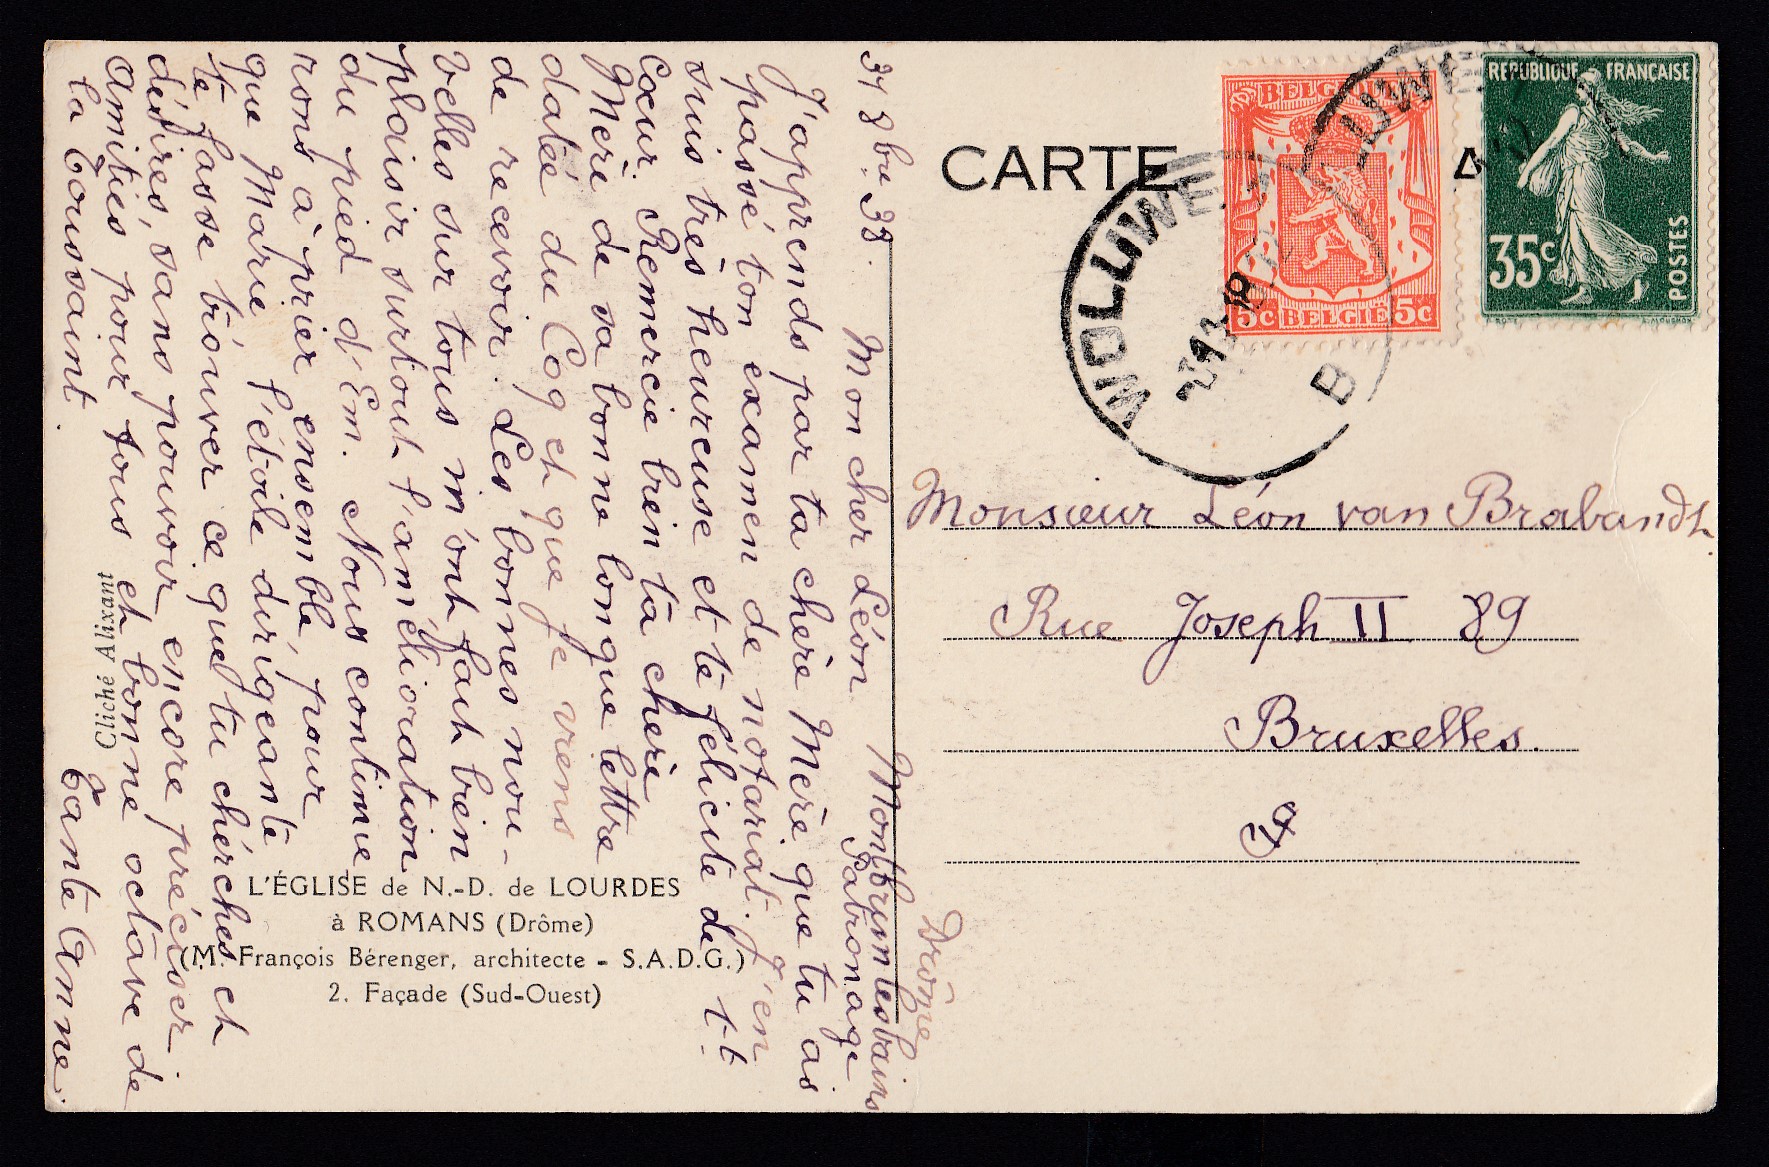 CARTE
REPUBLIQUE FRANÇAISE
35c
POSTES
BELGIQUE
5c BELGIË 5c
WOLUWE
B
Monsieur Léon van Brabandt
Rue Joseph II 89
Bruxelles.
31 8bre 38.
Montbrun les bains
Drôme
Patronage
Mon cher Léon
J'apprends par ta chère Mère que tu as
passé ton examen de notariat. J'en
suis très heureuse et te félicite de t-t
cœur. Remercie bien ta chère
Mère de sa bonne longue lettre
datée du Coq et que je viens
de recevoir. Les bonnes nou-
velles sur tous m'ont fait bien
plaisir surtout l'amélioration
du pied d'Em. Nous continue
rons à prier ensemble, pour
que Marie, l'étoile dirigeante
te fasse trouver ce que tu cherches et
désires, sans pouvoir encore préciser
Amitiés pour tous et bonne octave de
la Toussaint.
Tante Anne.
Cliché Alixant
L'ÉGLISE de N.-D. de LOURDES
à ROMANS (Drôme)
(M. François Bérenger, architecte - S.A.D.G.)
2. Façade (Sud-Ouest)